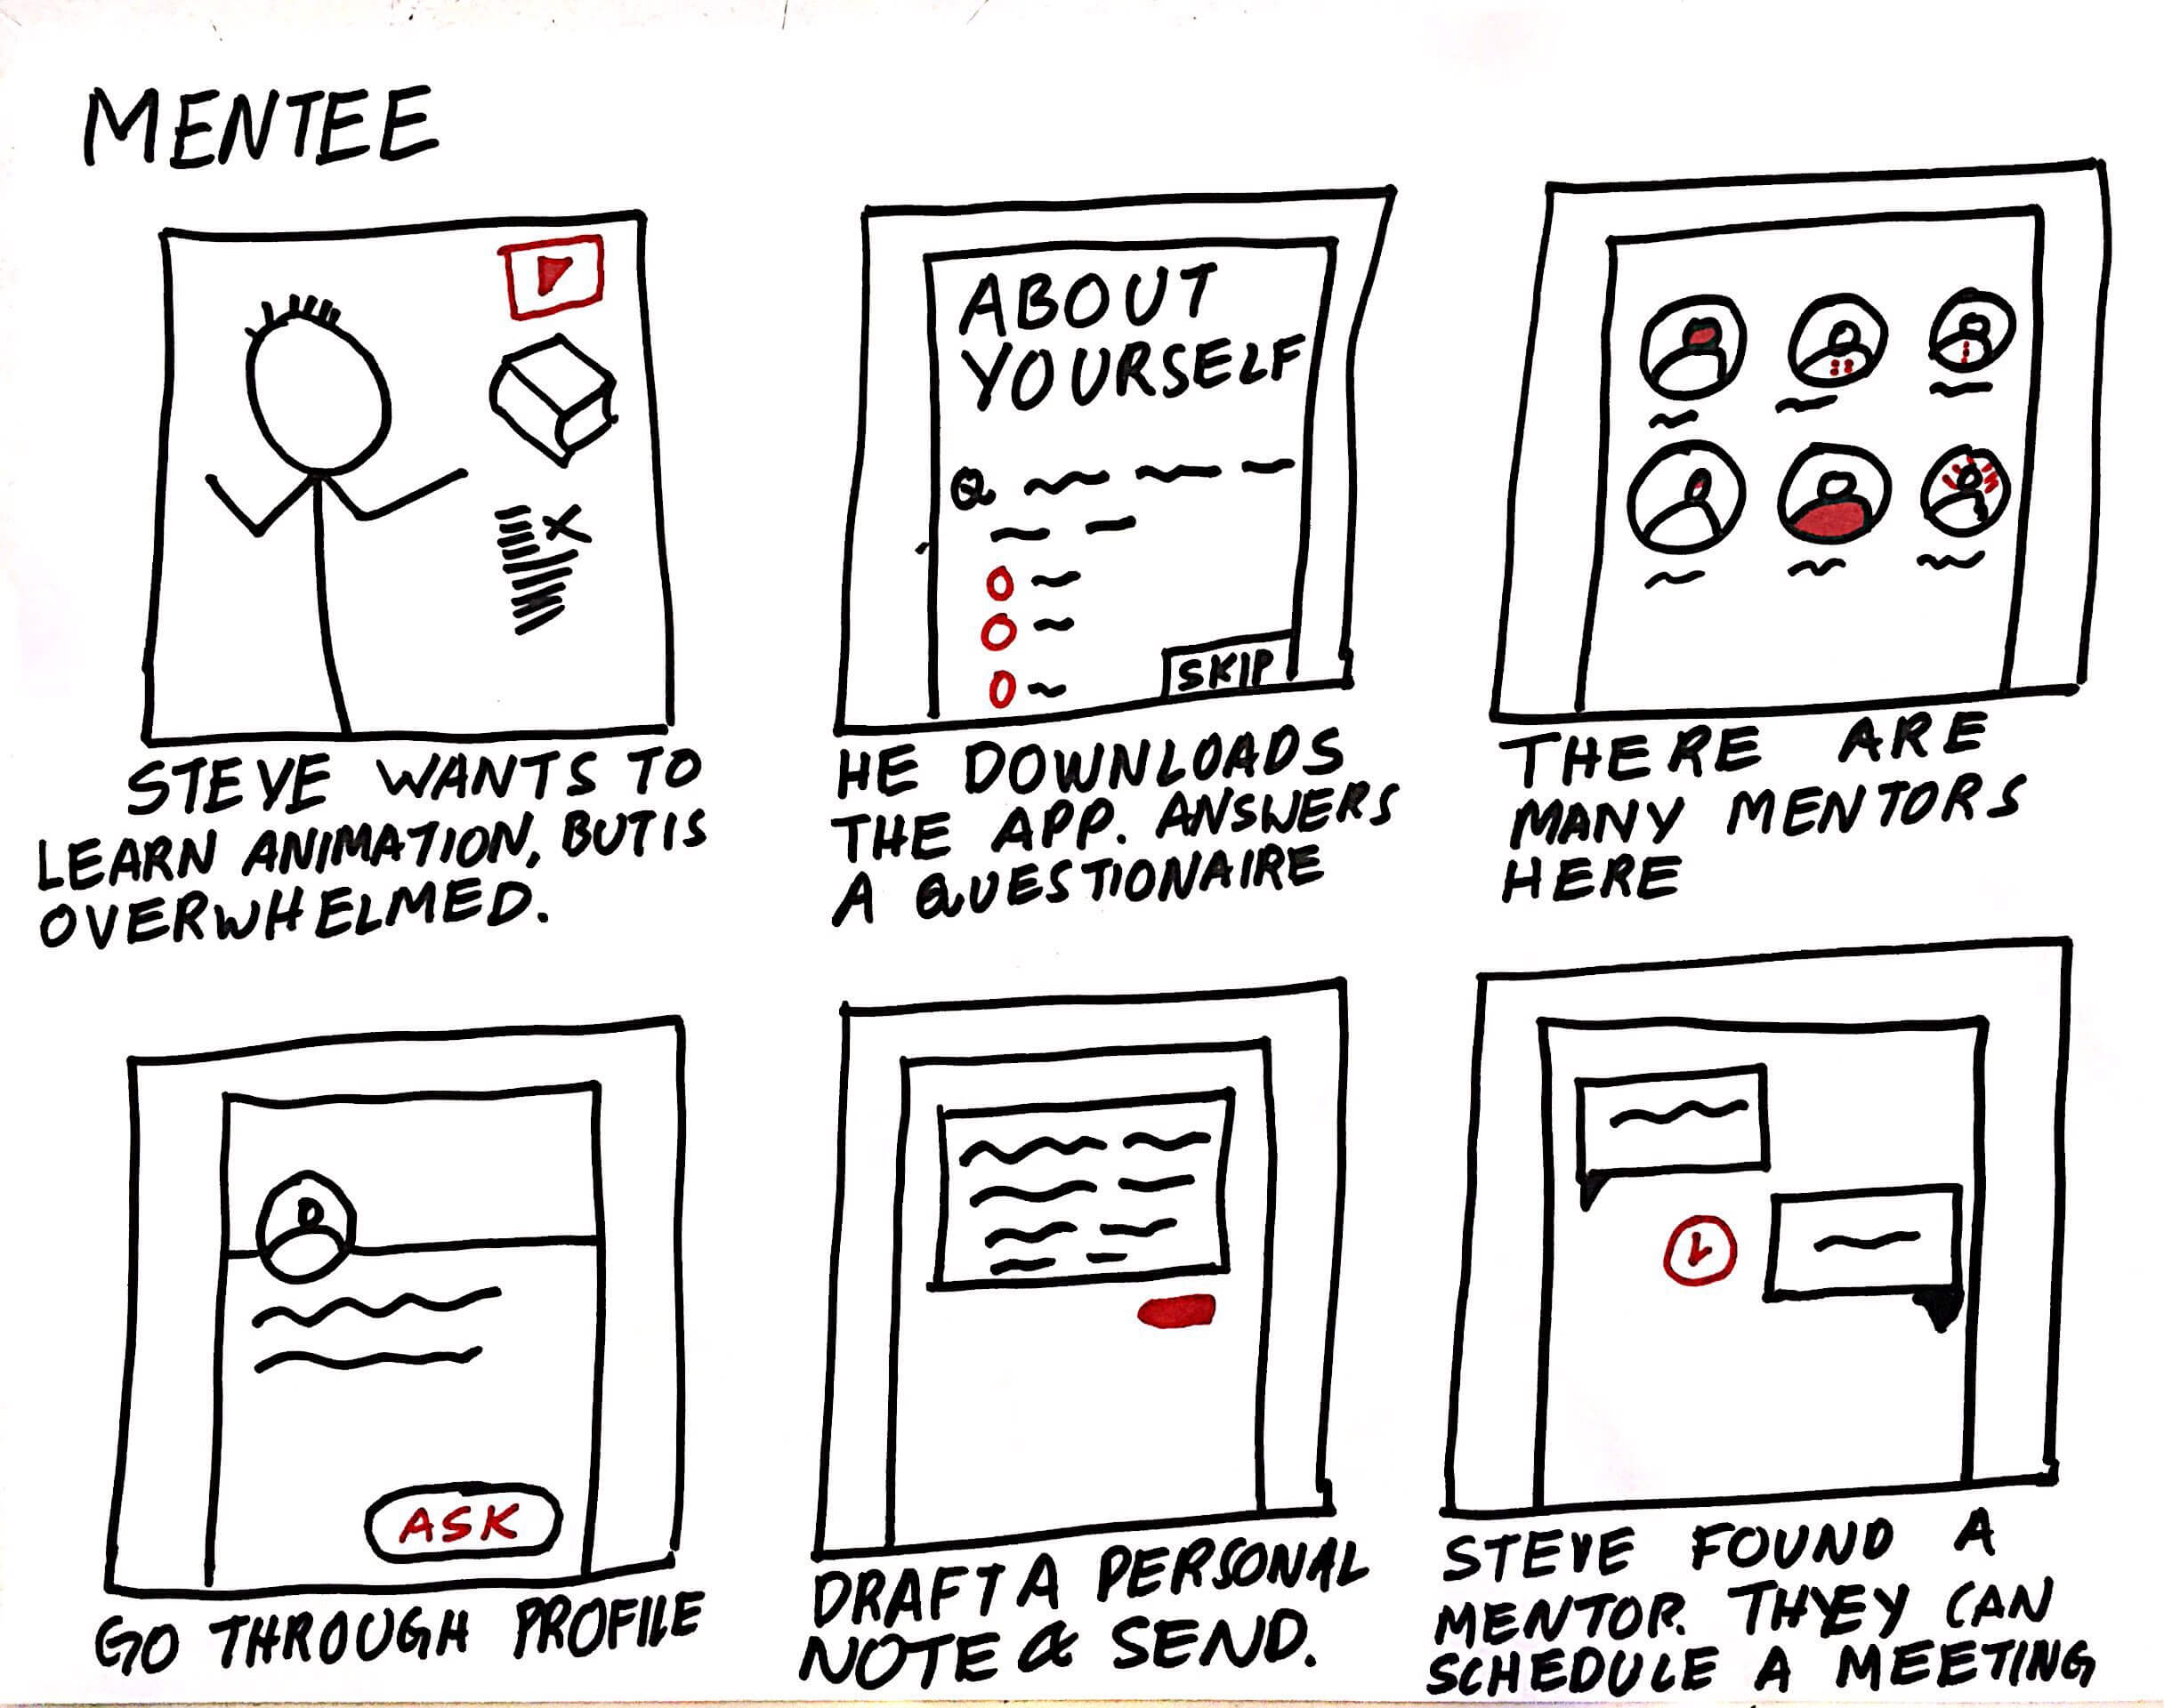 MENTEE
ABOUT
YOURSELF
Q
SKIP
STEVE WANTS TO
LEARN ANIMATION, BUT IS
OVERWHELMED.
HE DOWNLOADS
THE APP. ANSWERS
A QUESTIONAIRE
THERE ARE
MANY MENTORS
HERE
ASK
GO THROUGH PROFILE
DRAFT A PERSONAL
NOTE & SEND.
STEVE FOUND A
MENTOR. THYEY CAN
SCHEDULE A MEETING